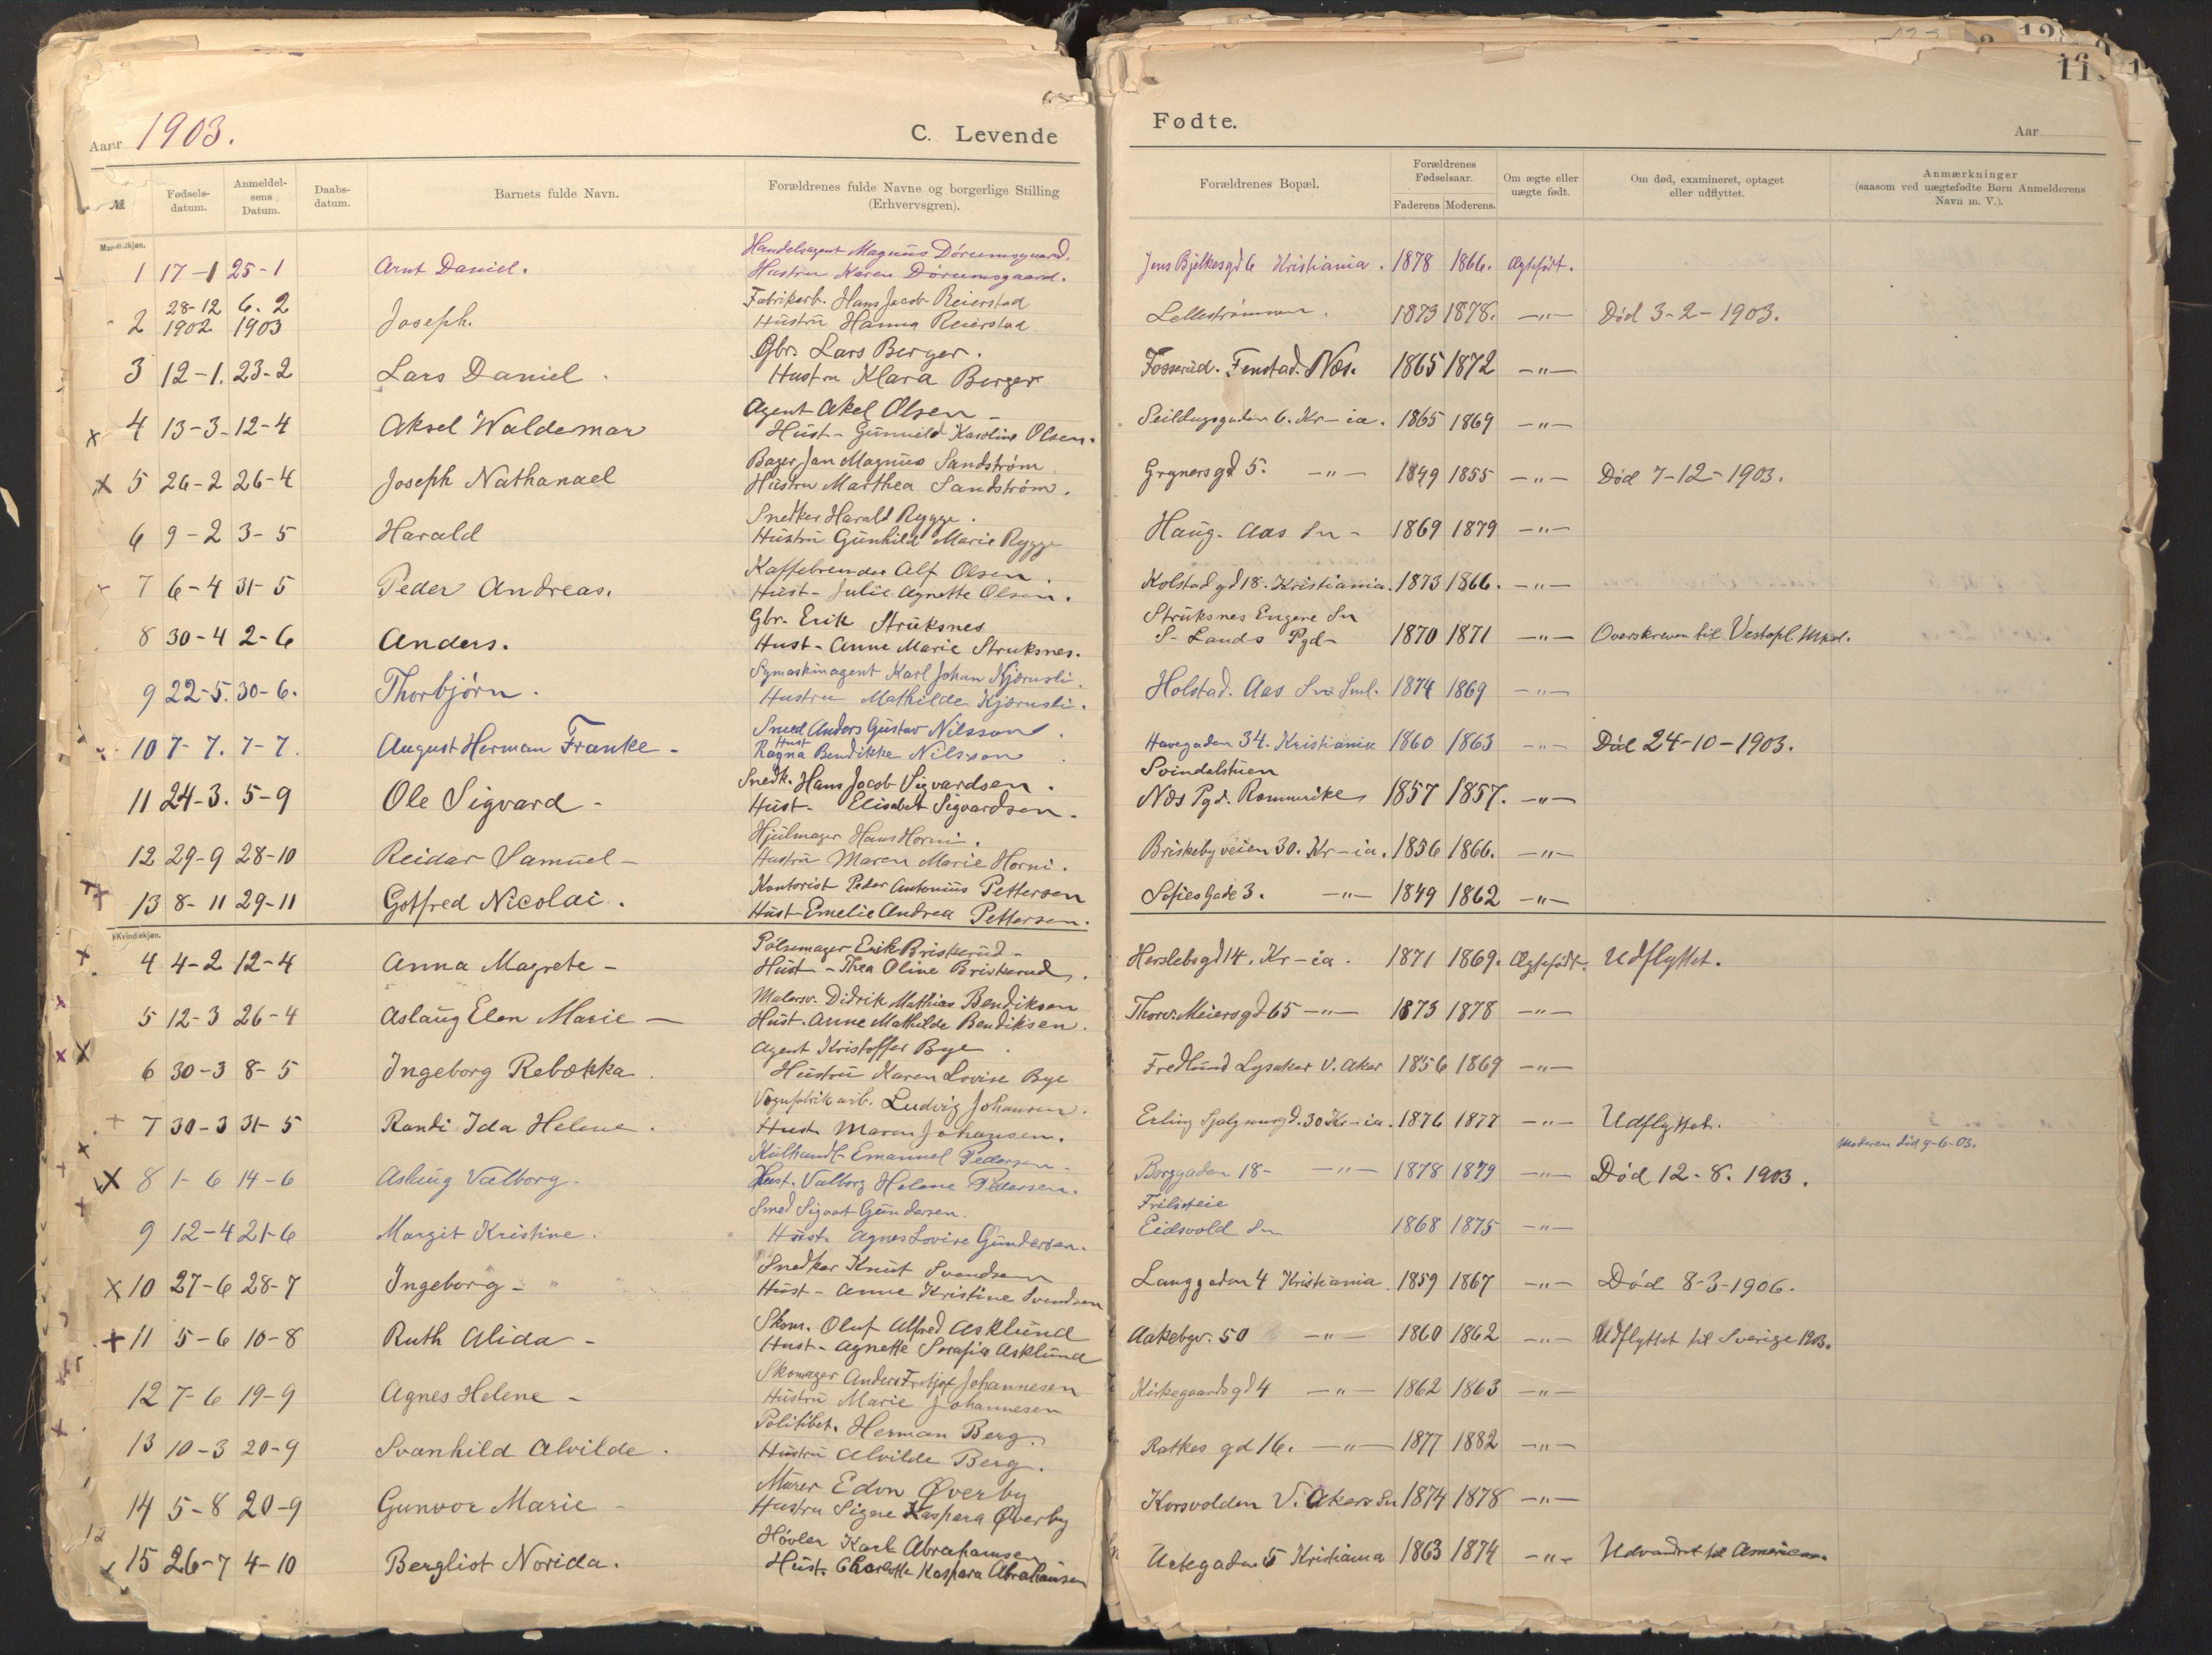 Aar 1903.
C. Levende Fødte.
Aar
11
№
Fødsels-datum.
Anmeldelsens Datum.
Daabs-datum.
Barnets fulde Navn.
Forældrenes fulde Navne og borgerlige Stilling (Erhvervsgren).
Forældrenes Bopæl.
Forældrenes Fødselsaar.
Faderens Moderens.
Om ægte eller uægte født.
Om død, examineret, optaget eller udflyttet.
Anmærkninger (saasom ved uægtefødte Børn Anmelderens Navn m. V.).
Mandkjøn.
Handelsagent Magnus Dørumsgaard.
1 17-1 25-1 Arnt Daniel. Hustru Karen Dørumsgaard. Jens Bjelkesgd 6 Kristiania. 1878 1866. Ægtefødt.
28-12 6.2 Fabrikarb. Hans Jacob Reierstad
2 1902 1903 Joseph. Hustru Hanna Reierstad Lellestrømmen. 1873 1878. -"- Död 3-2-1903.
Gbr. Lars Berger.
3 12-1. 23-2 Lars Daniel. Hustru Klara Berger Fosserud. Fenstad. Nes. 1865 1872 -"-
Agent Akel Olsen -
x 4 13-3- 12-4 Aksel Waldemar Hust- Gunnild Karoline Olsen. Seildugsgaden 6. Kr-ia. 1865 1869 -"-
Bager Jan Magnus Sandstrøm
x 5 26-2 26-4 Joseph Nathanael Hustru Marthea Sandstrøm. Grynersgd 5. -"- 1849 1855 -"- Död 7-12-1903.
Snedker Harald Rygge.
6 9-2 3-5 Harald Hustru Gunhild Marie Rygge Haug. Aas Sn- 1869 1879 -"-
Kaffebrender Alf Olsen.
7 6-4 31-5 Peder Andreas. Hust- Julie Agnette Olsen. Kolstadgd 18. Kristiania. 1873 1866. -"-
Gbr. Erik Struksnes Struksnes Engene Sn
8 30-4 2-6 Anders. Hust- Anne Marie Struksnes. S- Lands Pgd- 1870 1871 -"- Overskreven til Vestopl. Mkd.
Symaskinagent Karl Johan Kjærnsli.
9 22-5. 30-6. Thorbjörn. Hustru Mathilde Kjærnsli. Holstad. Aas Sn Sml. 1874 1869 -"-
Smed Anders Gustav Nilsson.
10 7-7. 7-7. August Herman Franke - Hust Ragna Bendikke Nilsson Havegaden 34. Kristiania 1860 1863 -"- Död 24-10-1903.
Snedk. Hans Jacob Sigvardsen. Svindalstuen
11 24-3. 5-9 Ole Sigvard - Hust- Elisabet Sigvardsen. Næs Pgd. Romerike 1857 1857. -"-
Hjulmager Hans Horni.
12 29-9 28-10 Reidar Samuel - Hustru Maren Marie Horni. Briskebyveien 30. Kr-ia. 1856 1866. -"-
Kontorist Peder Antonius Pettersen
13 8-11 29-11 Gotfred Nicolai. Hust- Emelie Andrea Pettersen. Sofies Gade 3. -"- 1849 1862 -"-
Kvindekjøn.
Pølsemager Erik Briskerud -
x 4 4-2 12-4 Anna Magrete - Hust- Thea Oline Briskerud. Herslebsgd 14. Kr-ia. 1871 1869. Ægtefödt. Udflyttet.
Malersv. Didrik Mathias Bendiksen
x 5 12-3 26-4 Aslaug Elen Marie - Hust. Anne Mathilde Bendiksen. Thorv. Meiersgd 65 -"- 1873 1878 -"-
Agent Kristoffer Bye.
x x 6 30-3 8-5 Ingeborg Rebækka. Hustru Karen Lovise Bye Fredlund Lysaker V. Aker 1856 1869 -"-
Vognfabrik arb. Ludvig Johansen.
+ 7 30-3 31-5 Randi Ida Helene. Hust. Maren Johansen. Erling Sjalgsonsgd. 30 Kr-ia. 1876 1877 -"- Udflyttet.
Kulhandl. Emanuel Pedersen - Moderen död 9-6-03.
x 8 1-6 14-6 Aslaug Valborg. Hust. Valborg Helene Pedersen. Borggaden 18- -"- 1878 1879 -"- Död 12-8. 1903.
Smed Sigvart Gundersen. Frilseteie
9 12-4 21-6 Margit Kristine. Hust. Agnes Lovise Gundersen. Eidsvold Sn 1868 1875 -"-
Snedker Knut Svendsen
x 10 27-6 28-7 Ingeborg - Hust- Anne Kristine Svendsen Langgaden 4 Kristiania. 1859 1867 -"- Död 8-3-1906.
Skom. Oluf Alfred Asklund
+ 11 5-6 10-8 Ruth Alida - Hust- Agnette Serafia Asklund Aakebgv. 50 -"- 1860 1862 -"- Udflyttet til Sverige 1903.
Skomager Anders Fretjof Johannesen
12 7-6 19-9 Agnes Helene - Hustru Marie Johannesen Kirkegaardsgd 4 -"- 1862 1863 -"-
Politibet. Herman Berg.
13 10-3 20-9 Svanhild Alvilde. Hustru Alvilde Berg. Ratkes gd 16. -"- 1877 1882 -"-
Murer Edvn Øverby
14 5-8 20-9 Gunvor Marie - Hustru Signe Kaspara Øverby Korsvolden V. Akers Sn 1874 1878 -"-
Høvler Karl Abrahamsen
x 15 26-7 4-10 Bergliot Norida. Hust. Charlotte Kaspara Abrahamsen Urtegaden 5 Kristiania 1863 1874 -"- Udvandret til Amerika.